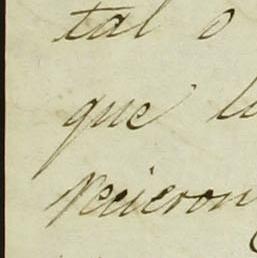 tal o
que la
recieron